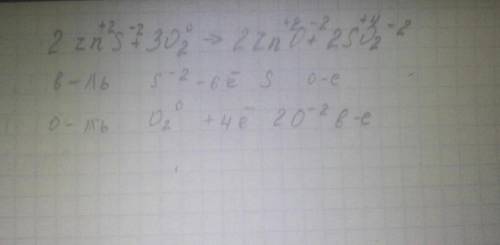 2 Zn⁺²S⁻² + 3O₂⁰ → 2Zn⁺²O⁻² + 2S⁺⁴O₂⁻²
в-ль S⁻² - 6e̅ S о-е
о-ль O₂⁰ + 4e̅ 2O⁻² в-е